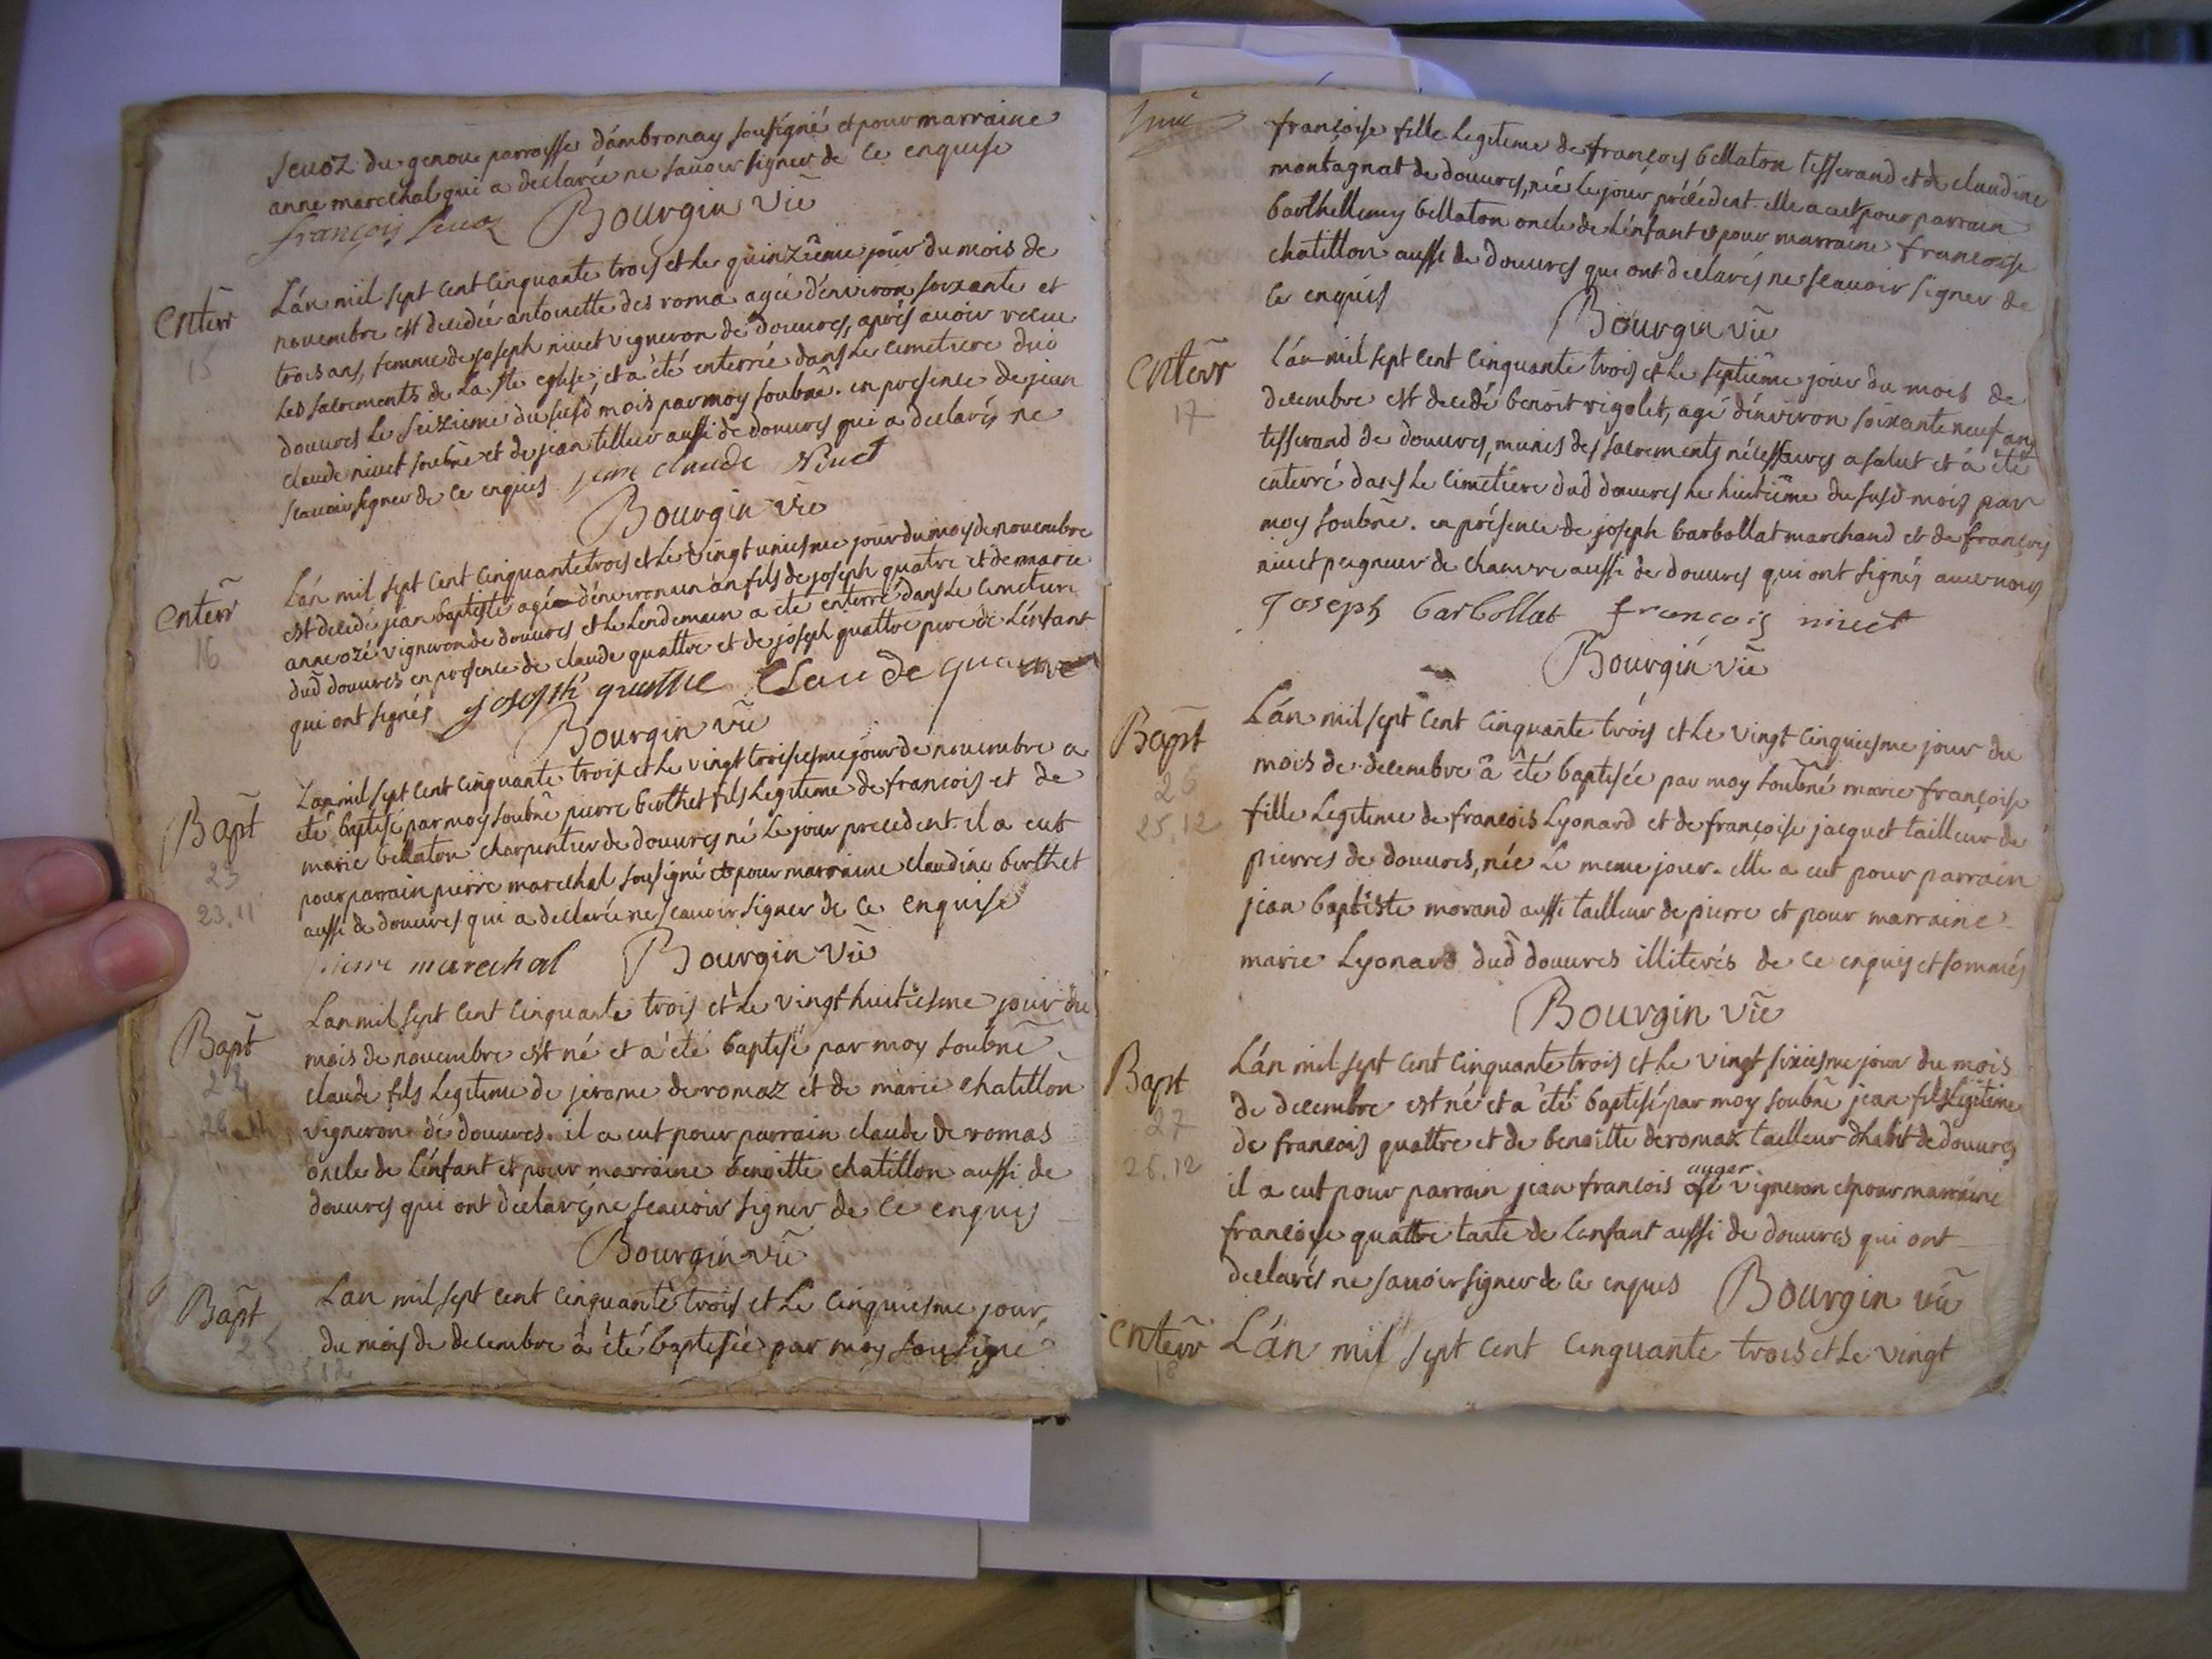 sevoz du genoue parroisse d'ambronay sousigné et pour marraine
anne marechal qui a declarée ne savoir signer de ce enquise
françois sevoz Bourgin vic̃
Enterr̃
15
L'an mil sept cent cinquante trois et le quinziême jour du mois de
novembre est decedée antoinette des roma agée d'environ soixante et
trois ans, femme de joseph nivet vigneron de douvres, aprés avoir recue
les sacrements de la ste eglise, et a été enterrée dans le cimetiere dud
douvres le seizieme du susd mois par moy soubne. en presence de jean
claude nivet soubné et de jean tillier aussi de douvres qui a declaréz ne
scavoir signer de ce enquis jean claude Nivet
Bourgin vic̃
Enterr̃
16
L'an mil sept cent cinquante trois et le vingt uniesme jour du moy de novembre
est decedé jean baptiste agé d'environ un an fils de joseph quatre et de marie
anne ozé vigneron de douvres et le lendemain a eté enterré dans le cimetiere
dud̃ douvres en presence de claude quattre et de joseph quattre pere de l'enfant
qui ont signés joseph quattre Claude quattre
Bourgin vic̃
Bapt̃
23
23.11
L'an mil sept cent cinquante trois et le vingt troisiesme jour de novembre a
eté baptisé par moy soubne pierre berthet fils legiteme de francois et de
marie bellaton charpentier de douvres né le jour precedent. il a eut
pour parrain pierre marechal sousigné et pour marraine claudine berthet
aussi de douvres qui a declarée ne scavoir signer de ce enquise
pierre marechal Bourgin vic̃
Bapt̃
24
L'an mil sept cent cinquante trois et le vingt huitiesme jour du
mois de novembre est né et a été baptisé par moy soubné
claude fils legiteme de jerome deromaz et de marie chatillon
vigneron de douvres. il a eut pour parrain claude deromas
oncle de l'enfant et pour marraine benoitte chatillon aussi de
douvres qui ont declarés ne scavoir signer de ce enquis
Bourgin vic̃
Bapt̃
25
5 12
L'an mil sept cent cinquante trois et le cinquiesme jour
du mois de decembre a été baptisée par moy sousigné
françoise fille legiteme de françois bellaton tisserand et de claudine
montagnat de douvres, née le jour précédent. elle a eut pour parrain
barthellemy bellaton oncle de l'enfant et pour marraine francoise
chatillon aussi de douvres qui ont declarés ne scavoir signer de
ce enquis
Bourgin vic̃
Enterr̃
17
L'an mil sept cent cinquante trois et le septiême jour du mois de
decembre est decedé benoit rigolet, agé d'environ soixante neuf ans
tisserand de douvres, munis des sacrements nécessaires a salut et a été
enterré dans le cimetiere dud douvres le huitiême du susd mois par
moy soubne. en présence de joseph barbollat marchand et de françois
nivet peigneur de chanvre aussi de douvres qui ont signés avec nous
joseph barbollat francois nivet
Bourgin vic̃
Bapt
26
25.12
L'an mil sept cent cinquante trois et le vingt cinquiesme jour du
mois de decembre a été baptisée par moy soubné marie françoise
fille legiteme de francois Lyonard et de françoise jacquet tailleur de
pierres de douvres, née le meme jour. elle a eut pour parrain
jean baptiste morand aussi tailleur de pierre et pour marraine
marie Lyonard dud̃ douvres illiterés de ce enquis et sommés
Bourgin vic̃
Bapt
27
26.12
L'an mil sept cent cinquante trois et le vingt sixiesme jour du mois
de decembre est né et a été baptisé par moy soubne jean fils legitime
de francois quattre et de benoitte deromaz tailleur d'habit de douvres
il a eut pour parrain jean francois ozé auger vigneron et pour marraine
francoise quattre tante de l'enfant aussi de douvres qui ont
declarés ne savoir signer de ce enques Bourgin vic̃
Enterr̃
18
L'an mil sept cent cinquante trois et le vingt